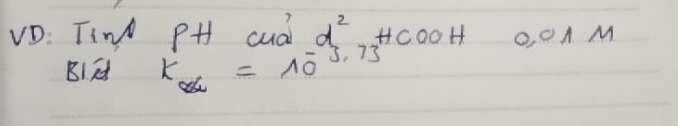 VD: Tính pH của d² HCOOH 0,01 M
Biết K = 10^-3,75